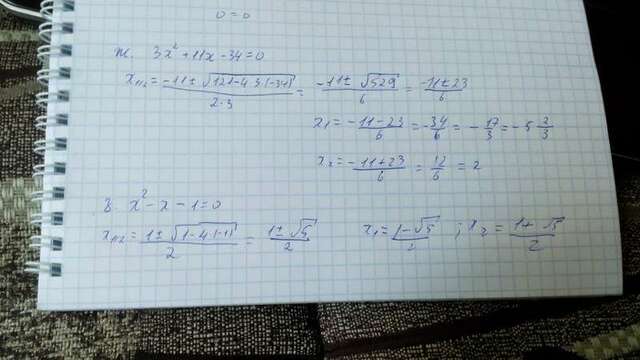 0 = 0
ж. 3x² + 11x - 34 = 0
x₁/₂ = (-11 ± √(121 - 4·3·(-34)))/(2·3) = (-11 ± √529)/6 = (-11 ± 23)/6
x₁ = (-11 - 23)/6 = -34/6 = -17/3 = -5 2/3
x₂ = (-11 + 23)/6 = 12/6 = 2
з. x² - x - 1 = 0
x₁/₂ = (1 ± √(1 - 4·(-1)))/2 = (1 ± √5)/2 x₁ = (1 - √5)/2 ; x₂ = (1 + √5)/2